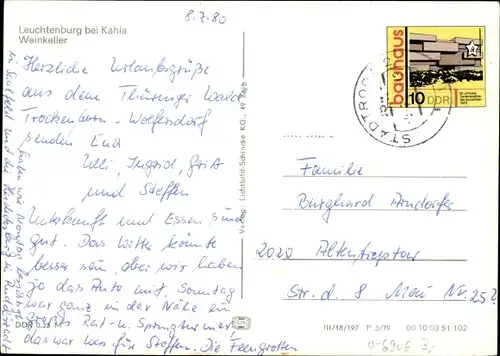 8.7.80
Leuchtenburg bei Kahla
Weinkeller
Herzliche Urlaubsgrüße
aus dem Thüringer Wald
Trockenborn-Wolfersdorf
senden Euch
Ulli, Ingrid, Grit
und Steffen
Unterkunft und Essen sind
gut. Das Wetter könnte
besser sein, aber wir haben
ja das Auto mit. Sonntag
war ganz in der Nähe ein
großes Reit- u. Springturnier,
das war was für Steffen. Die Feengrotten
in Saalfeld und die Heidecksburg in Rudolstadt
haben wir Montag besichtigt
DDR 0,25 M
Verlag: Lichtbild-Schincke KG., 49 Zeitz
bauhaus
10 DDR
STADTRODA
Familie
Burghard
2020 Altentreptow
Str. d. 8. Mai Nr. 25
III/18/197 P 3/79 00 10 03 51 102